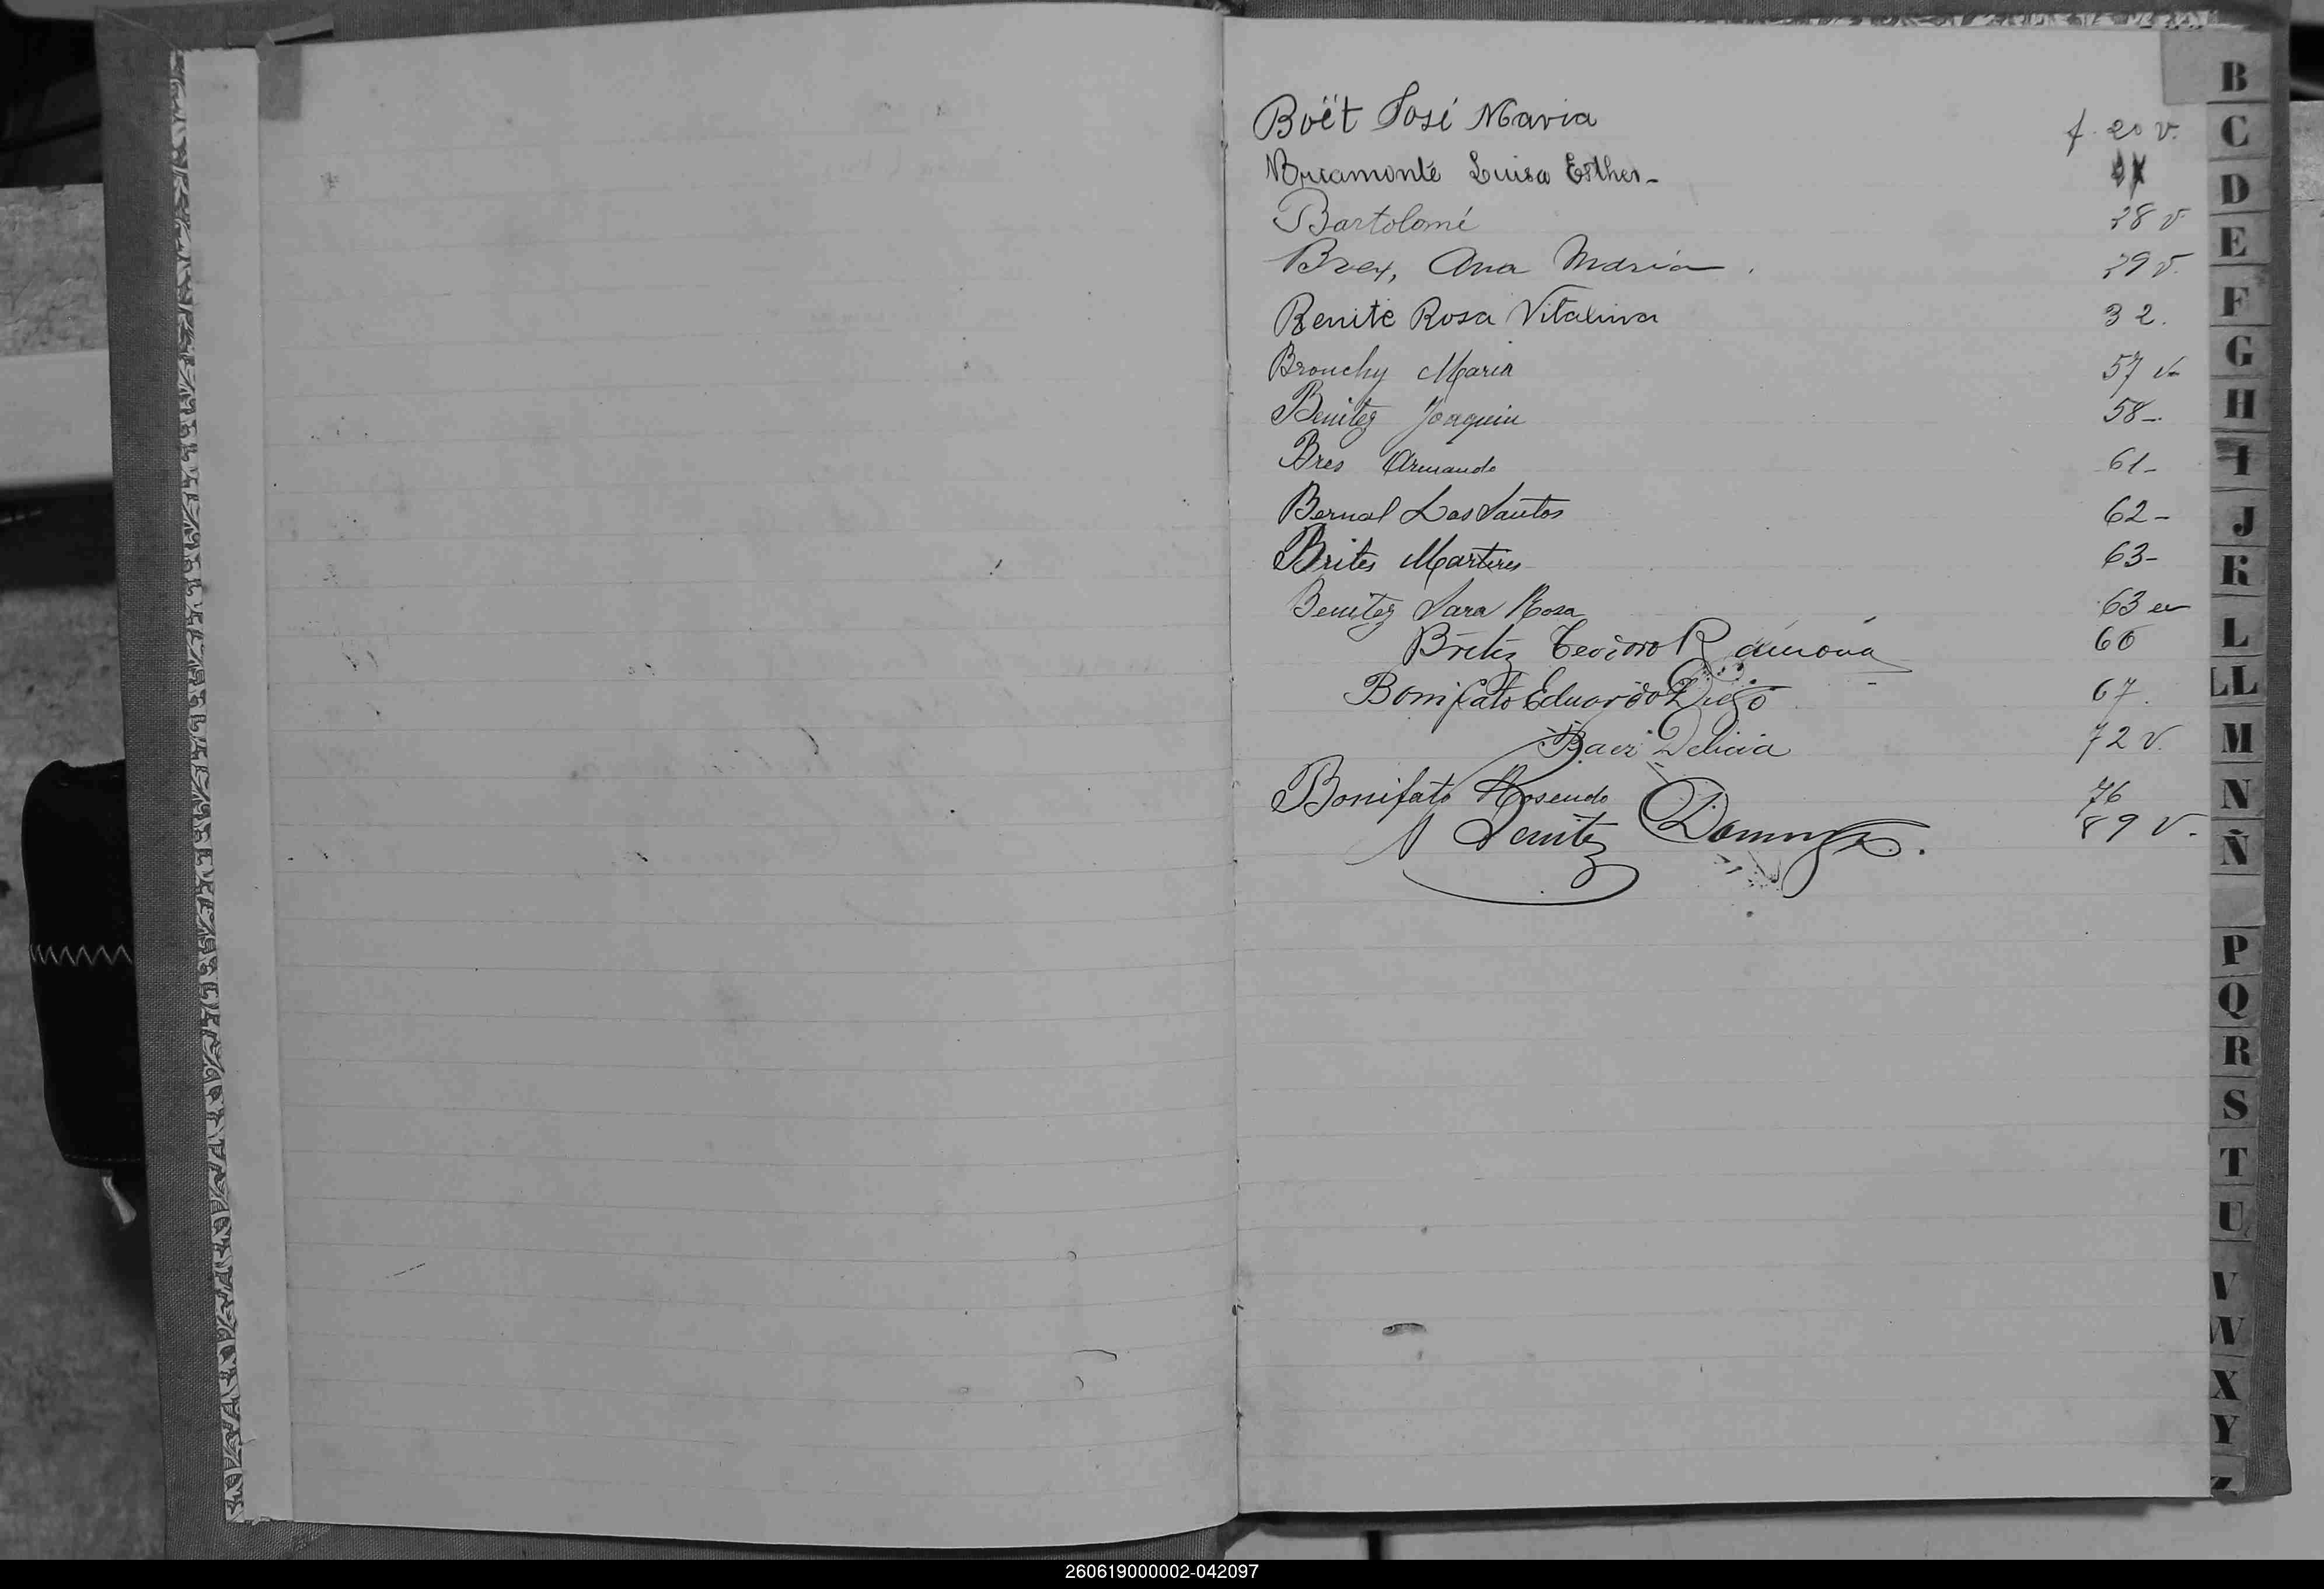 Boët José Maria f. 20 v.
Bricamonte Luisa Esther-
Bartolomé 28 v
Brex, Ana Maria. 29 v.
Benite Rosa Vitalina 32.
Bronchy Maria 57 v-
Benitez Joaquin 58-
Bres Armando 61-
Bernal Los Santos 62-
Brites Martires 63-
Benitez Sara Rosa 63
Britez Teodoro Ramona 66
Bonifato Eduardo Diego 67.
Baez Delicia 72 v.
Bonifato Rosendo 76
Benitez Dominga. 89 v.
B
C
D
E
F
G
H
I
J
K
L
LL
M
N
Ñ
P
Q
R
S
T
U
V
W
X
Y
Z
260619000002-042097